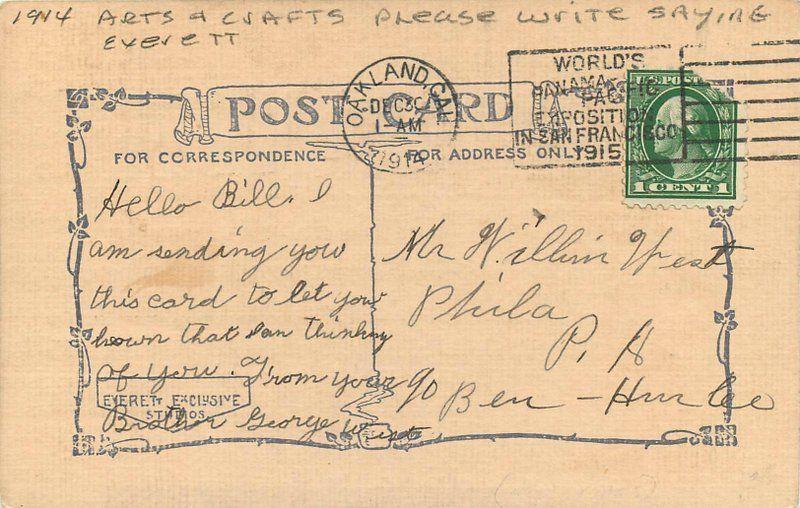 1914 ARTS & CRAFTS PLEASE WRITE SAYING
EVERETT
POST CARD
OAKLAND, CAL.
DEC 30
1-AM
1914
WORLD'S
PANAMA-PACIFIC
EXPOSITION
IN SAN FRANCISCO
1915
U.S. POST
1 CENT 1
FOR CORRESPONDENCE
FOR ADDRESS ONLY
Hello Bill. I
am sending you
this card to let your
known that I an thinking
of you. From your
Brother George West
EVERETT EXCLUSIVE
STUDIOS
Mr Willim West
Phila
P. A
c/o Ben-Hur